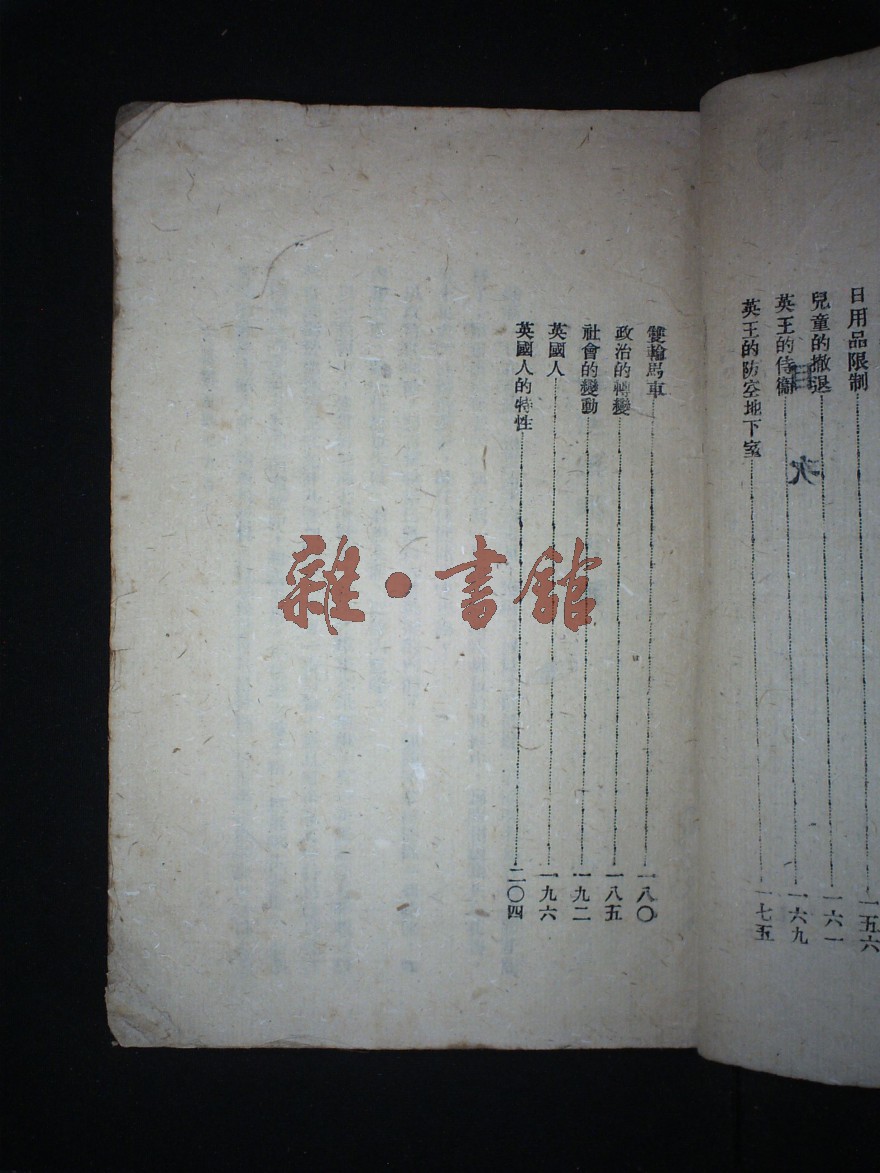 日用品限制……一五六
兒童的撤退……一六一
英王的侍衞……一六九
英王的防空地下室……一七五
目次
雙輪馬車……一八〇
政治的轉變……一八五
社會的變動……一九二
英國人……一九六
英國人的特性……二〇四
雜·書館